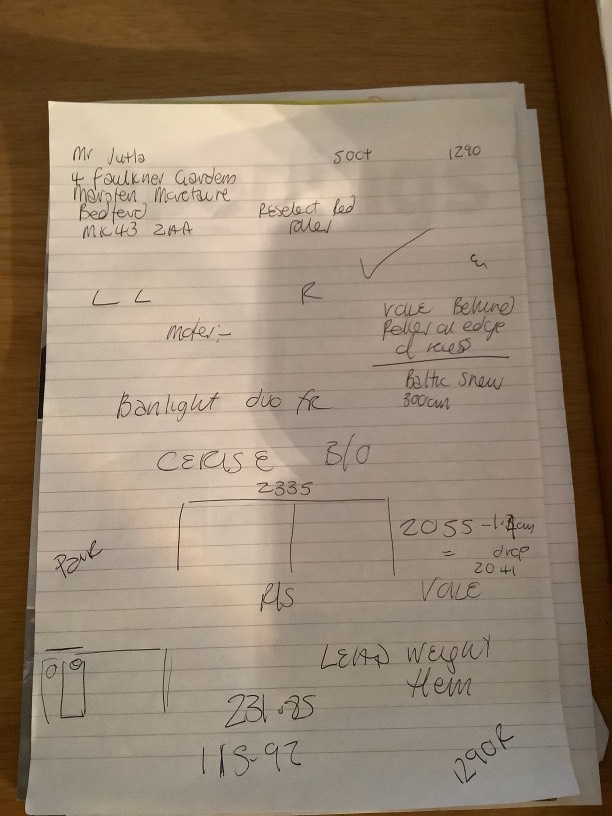 Mr Jutla 5 Oct 1290
4 Faulkner Gardens
Marsten Moretaine
Bedford
MK43 2AA
Reselect Red
roller
L L R
Vole Behind
Roller on edge
of recess
Moter:-
Baltic Snow
300cm
Banlight duo fr
CERISE B/O
2335
2055 -1.4cm
= drop
2041
R/S
Vole
LEAD Weight
Hem
231.85
115-92
1290R